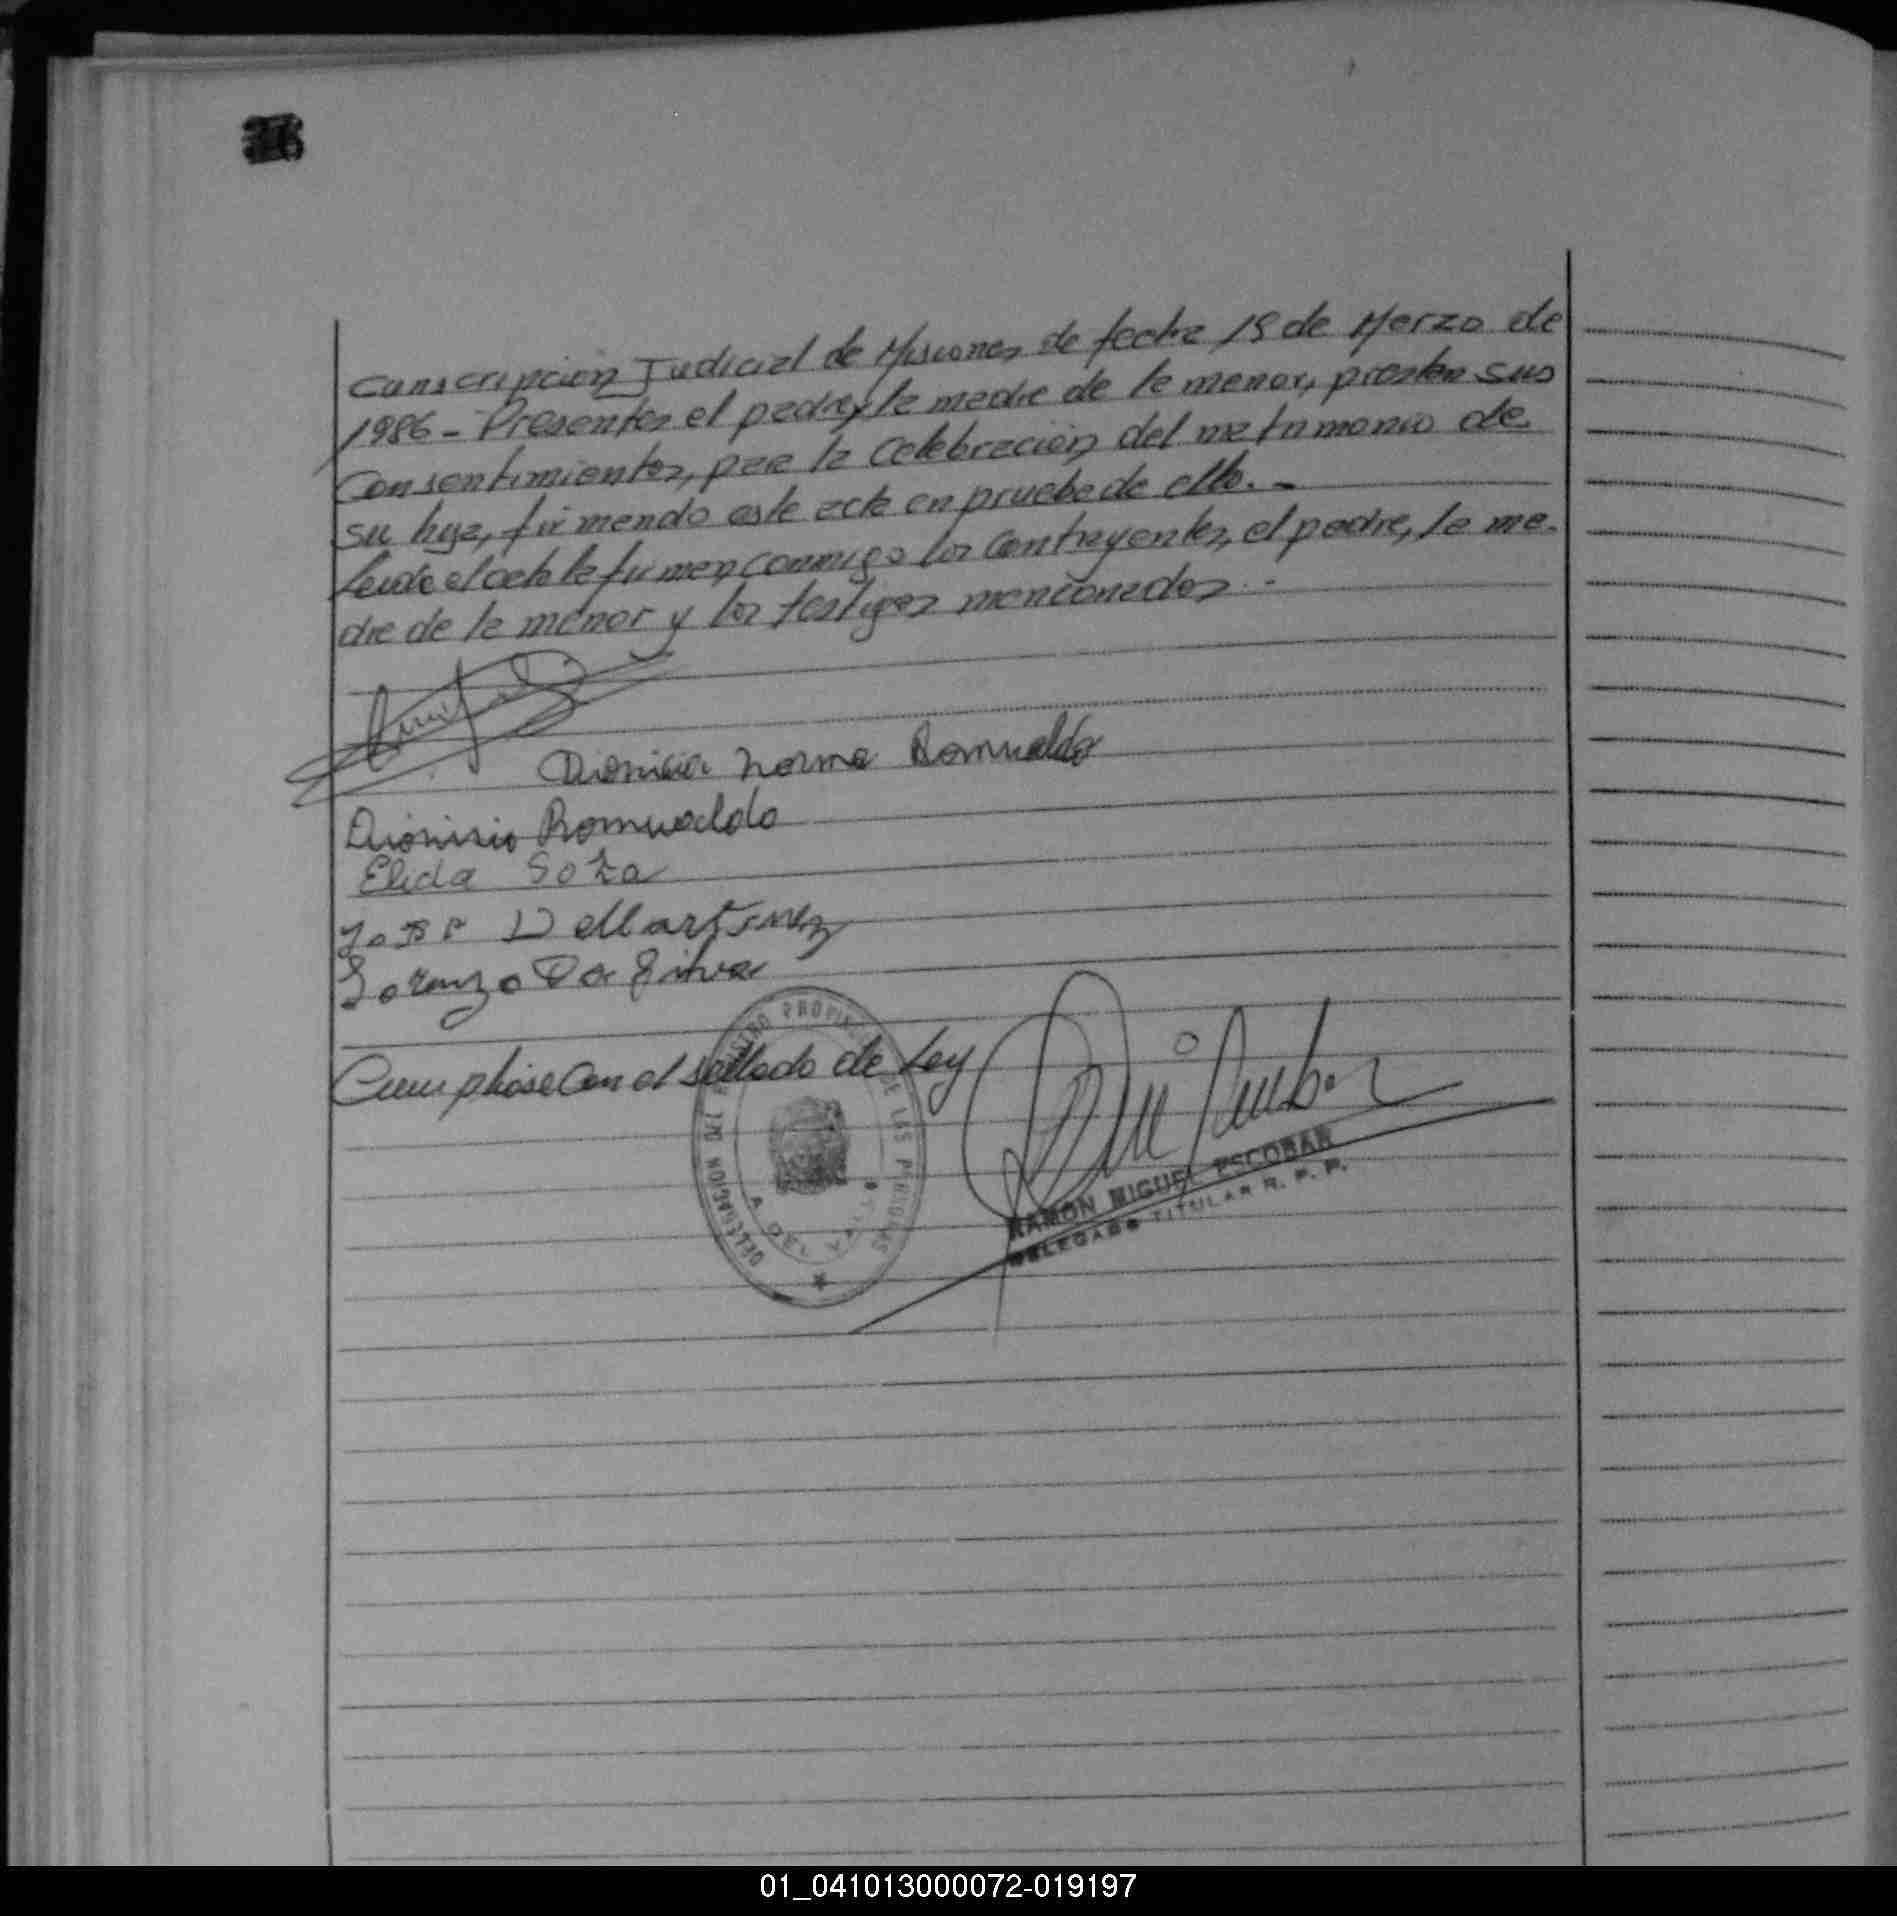 36
Cunscripción Judicial de Misiones de fecha 15 de Marzo de
1986 - Presentes el padre y la madre de la menor, prestan sus
Consentimientos, para la Celebración del matrimonio de
su hija, firmando este acta en prueba de ello. -
Leida el acta la firman conmigo los Contrayentes, el padre, la ma-
dre de la menor y los testigos mencionados - -
Dionicia Norma Romualdo
Dionisio Romualdo
Elida Sota
José D Martinez
Lorenzo Da Silva
Cumplase Con el sellado de Ley
DELEGACION DEL REGISTRO PROVINCIAL DE LAS PERSONAS
RAMON MIGUEL ESCOBAR
DELEGADO TITULAR R. P. P.
01_041013000072-019197